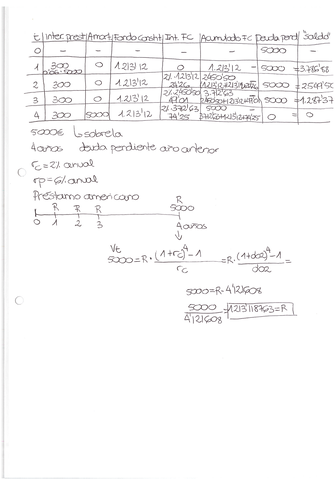 t Inter. prest Amort Fondo Constit Int. FC Acumulado FC Deuda pend "Saldo"
0 - - - - - 5000 -
1 300 0 1.213'12 0 1.213'12 - 5000 = 3.786'88
0'06·5000 2%·1.213'12 2450'50
2 300 0 1.213'12 24'26 - 5000 =
3 300 0 1.213'12 49'01 - 5000 =
4 300 5000 1.213'12 74'25 0 = 0
5000€ sobre la
4 años deuda pendiente año anterior
rc = 2% anual
rp = 6% anual
Préstamo americano
R R R R
5000
0 1 2 3 4 años
Vt
5000 = R · (1+rc)⁴ - 1 / rc = R · (1+0'02)⁴ - 1 / 0'02 =
5000 = R · 4'121608
5000 / 4'121608 = 1213'118763 = R